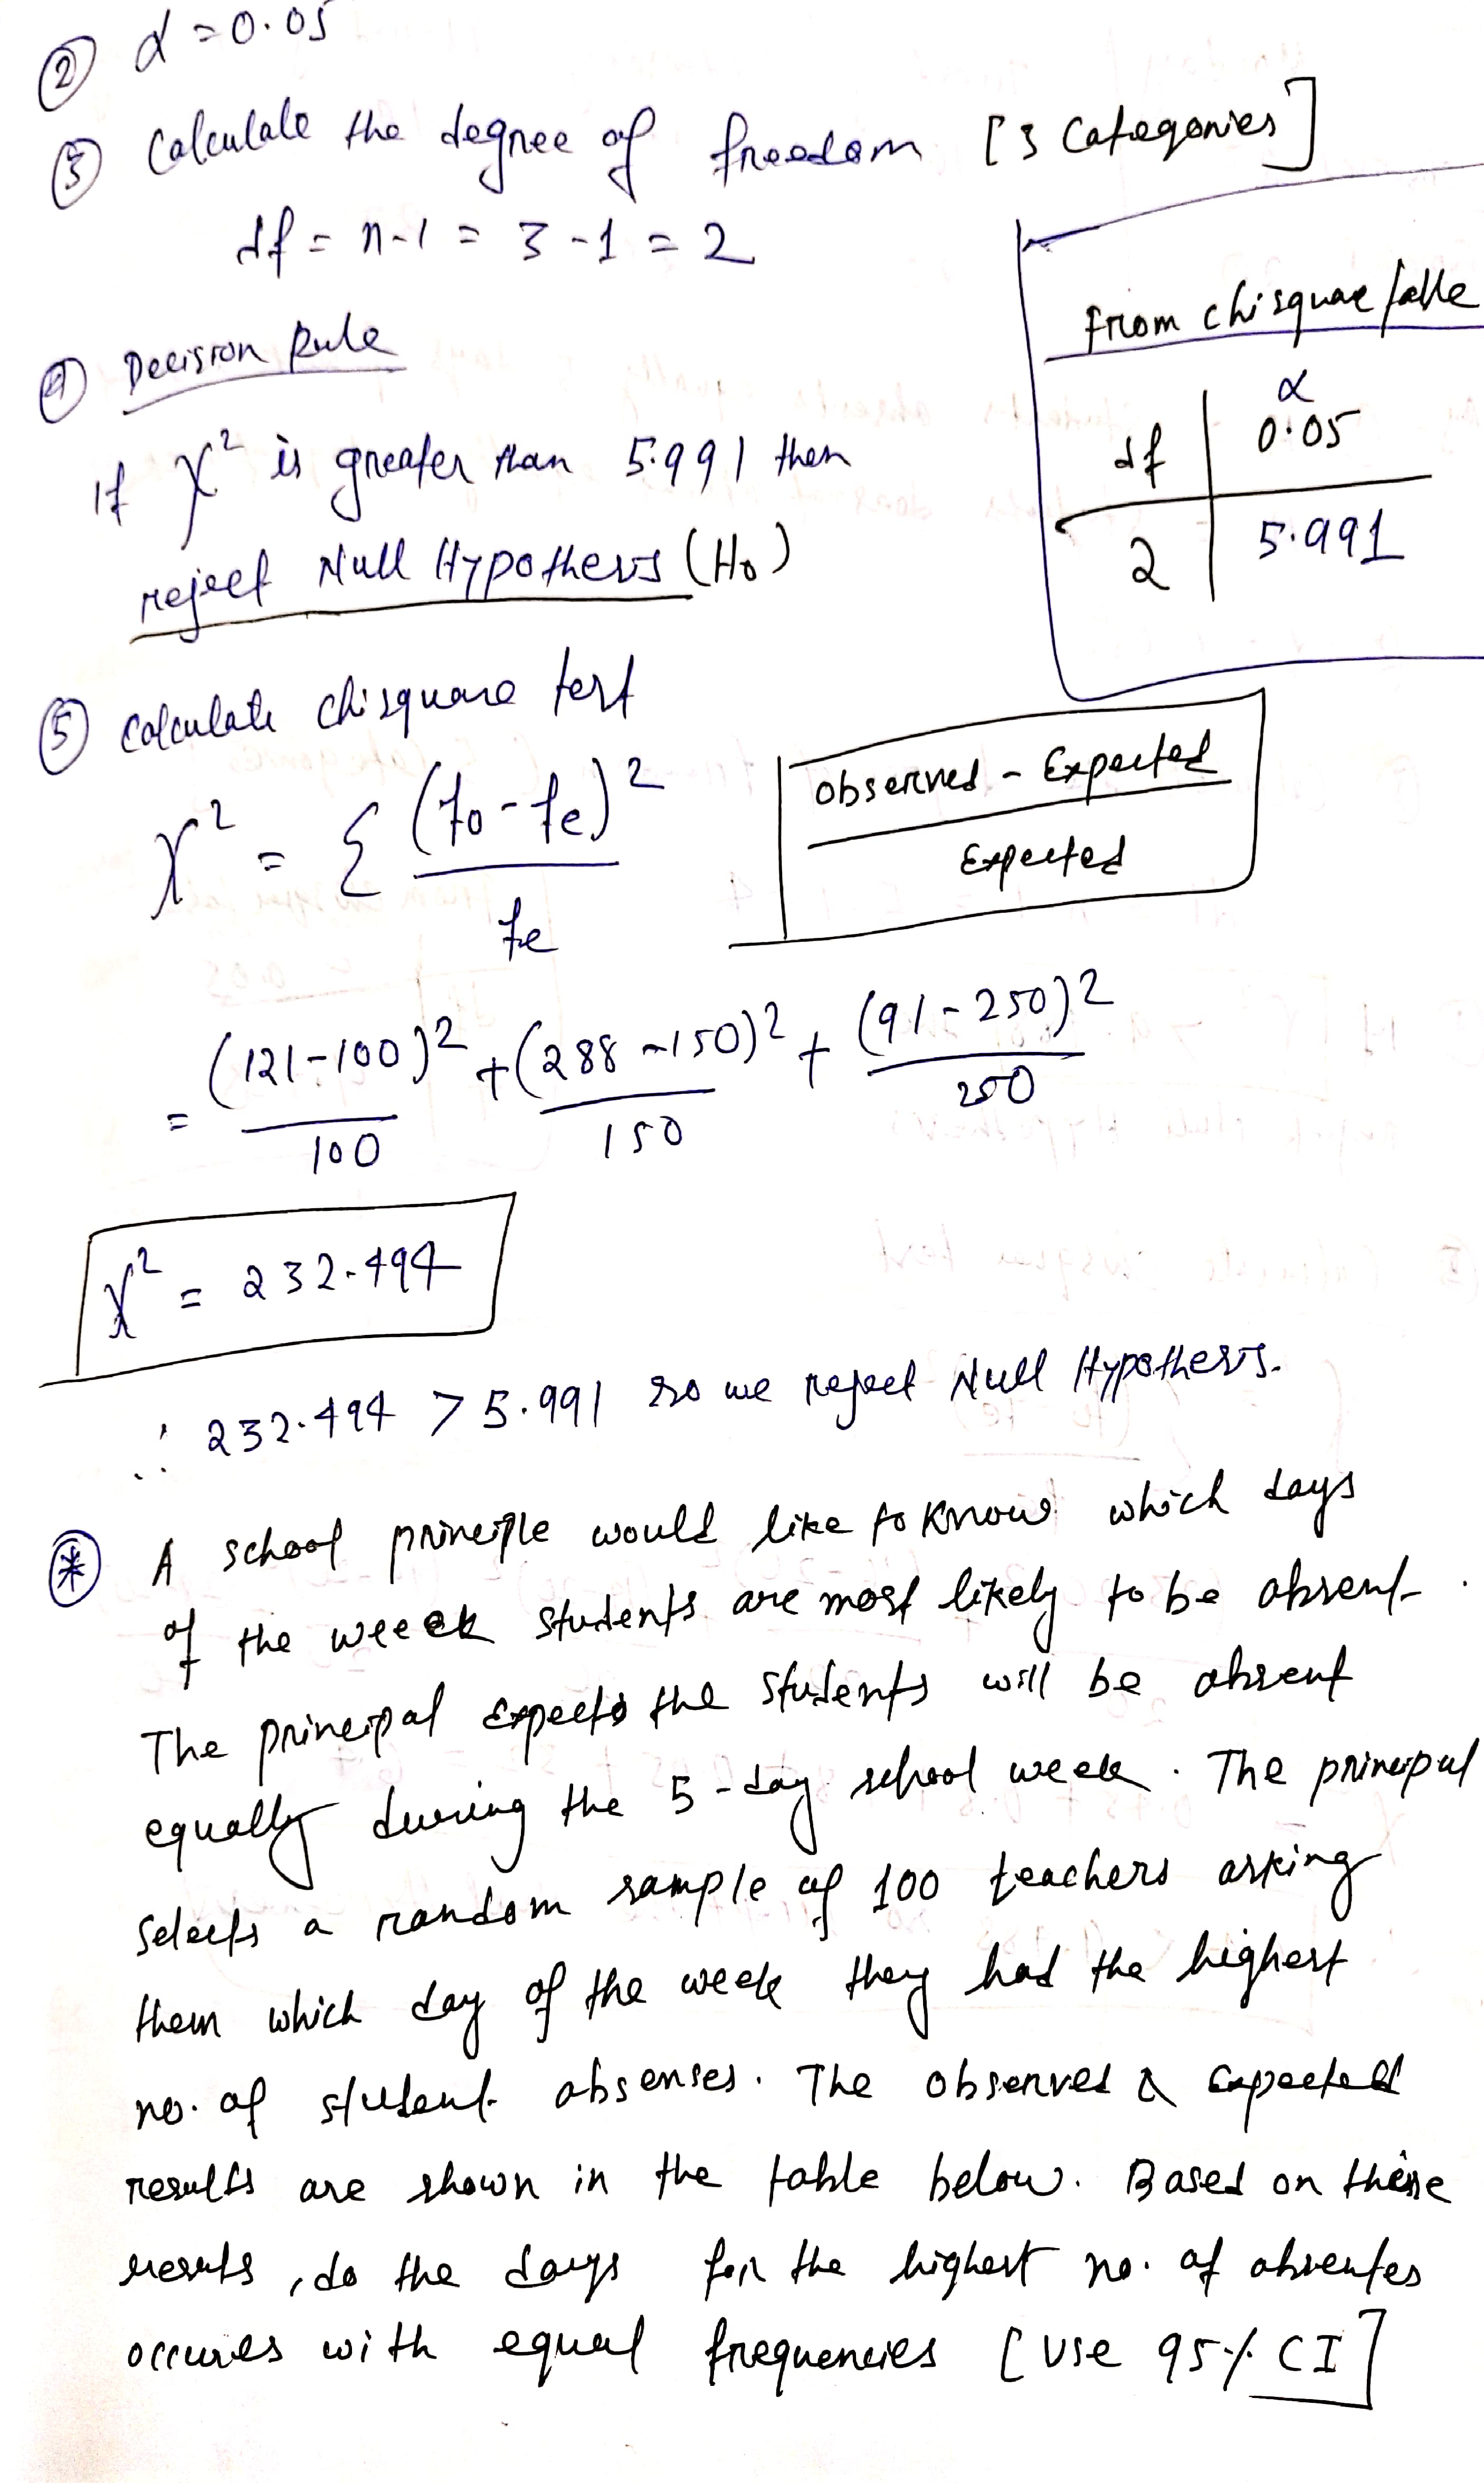 ② α = 0.05
③ Calculate the degree of freedom [3 Categories]
df = n-1 = 3-1 = 2
From chisquare table
α
df 0.05
2 5.991
④ Decision Rule
If χ² is greater than 5.991 then
reject Null Hypothesis (H₀)
⑤ Calculate chisquare test
χ² = Σ (fo - fe)² / fe
Observed - Expected
Expected
= (121-100)² / 100 + (288-150)² / 150 + (91-250)² / 250
χ² = 232.494
∴ 232.494 > 5.991 so we reject Null Hypothesis.
⊛ A school principle would like to know which days
of the weeek students are most likely to be absent.
The principal expects the students will be absent
equally during the 5-day school week. The principal
selects a random sample of 100 teachers asking
them which day of the week they had the highest
no. of student absenses. The observed & Expected
results are shown in the table below. Based on these
results, do the days for the highest no. of absentes
occures with equal frequencies [Use 95% CI]